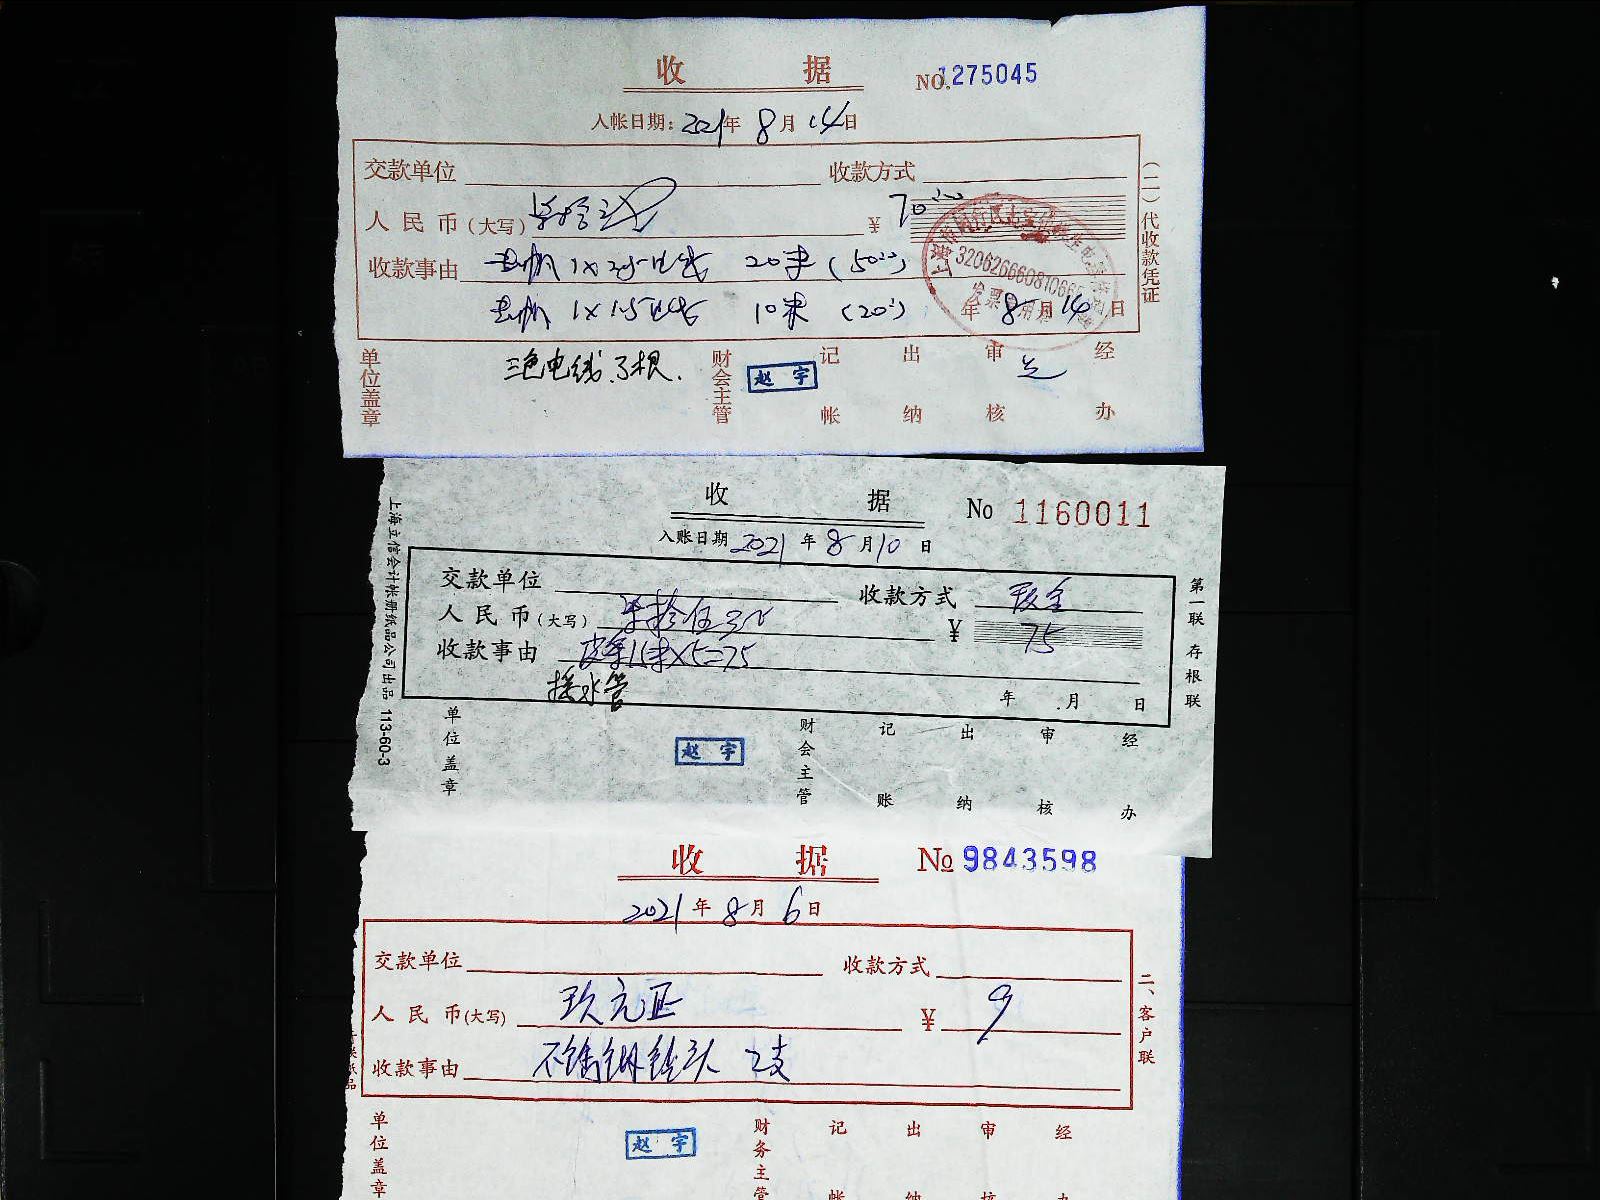 收 据 NO.1275045
入帐日期：2021年 8月 14日
交款单位 收款方式
人民币(大写) 柒拾元 ¥ 70.00
收款事由 1×2.5电线 20米 (50.00)
1×1.5电线 10米 (20.00) 年 8月 14日
3206266608106
发票专用章
三色电线.3根.
单位盖章 财会主管 赵宇 记帐 出纳 审核 经办
(二)代收款凭证
收 据 No 1160011
入账日期 2021年 8月 10日
交款单位 收款方式 现金
人民币(大写) 柒拾伍元 ¥ 75
收款事由 15米×5=75
接水管
年 月 日
单位盖章 赵宇 财会主管 记账 出纳 审核 经办
第一联 存根联
上海立信会计帐册纸品公司出品 113-60-3
收 据 No 9843598
2021年 8月 6日
交款单位 收款方式
人民币(大写) 玖元正 ¥ 9
收款事由 不锈钢钻头 2支
单位盖章 赵宇 财务主管 记帐 出纳 审核 经办
二、客户联